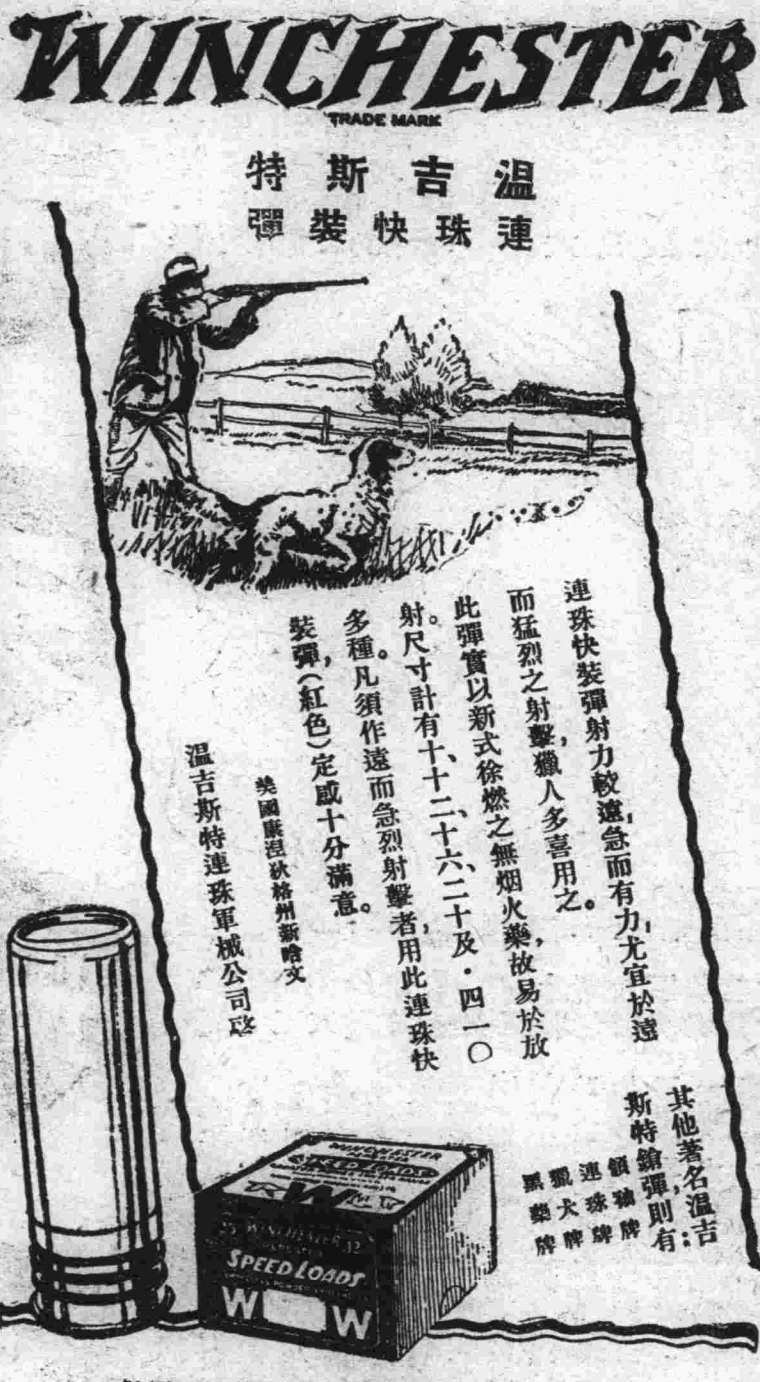 WINCHESTER
TRADE MARK
温吉斯特
連珠快裝彈
連珠快裝彈射力較遠,急而有力,尤宜於遠
而猛烈之射擊,獵人多喜用之。
此彈實以新式徐燃之無烟火藥,故易於放
射。尺寸計有十、十二、十六、二十及·四一〇
多種。凡須作遠而急烈射擊者,用此連珠快
裝彈,(紅色)定感十分滿意。
美國康涅狄格州新哈文
温吉斯特連珠軍械公司啓
其他著名温吉
斯特鎗彈,則有:
領袖牌
連珠牌
獵犬牌
黑藥牌
WINCHESTER
SPEED LOADS
W
WINCHESTER 12
SPEED LOADS
W W